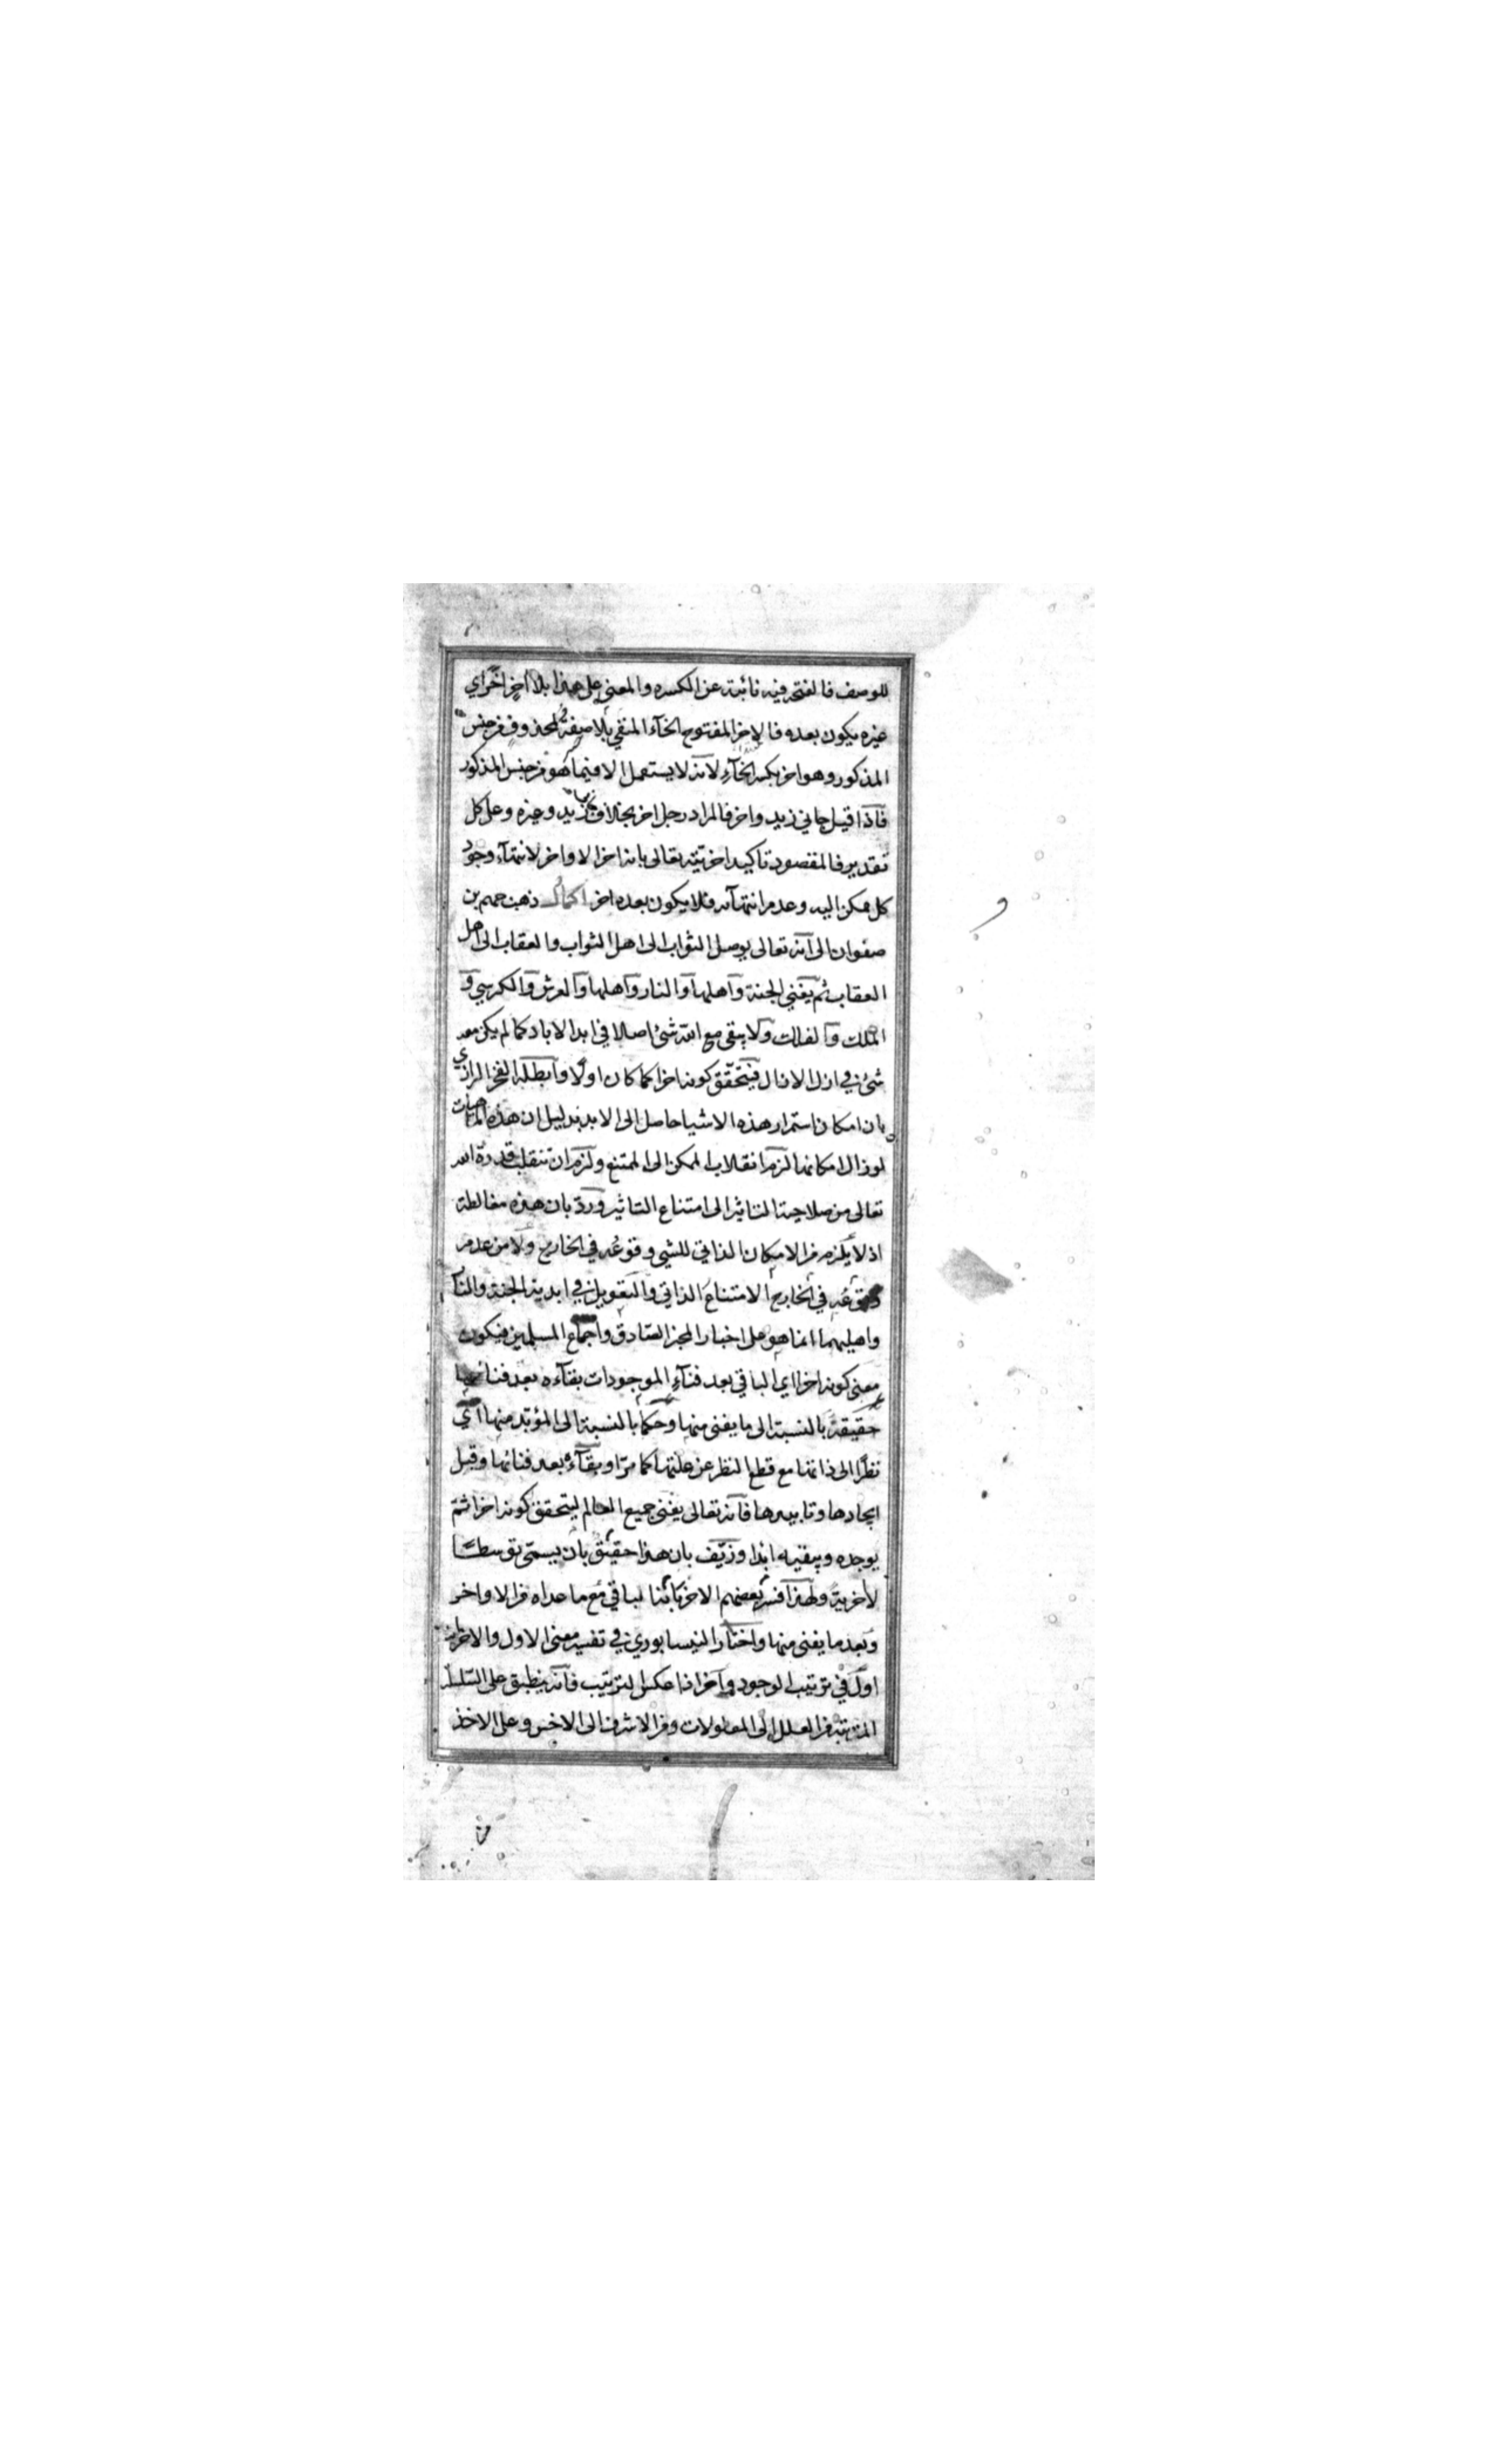 للوصف فالفتحة فيه نائبة عن الكسره والمعنى على هذا بلا اخر اخر اي
غيره يكون بعده فالاخر المفتوح الخآء المنفي بلا صفة لمحذوف من جنس
المذكور وهو اخر بكسر الخآء لانه لا يستعمل الا فيما هو من جنس المذكور
فاذا قيل جاني زيد واخر فالمراد رجل اخر بخلاف زيد وغيره وعلى كل
تقدير فالمقصود تاكيد اخريته تعالى بانه اخر الاواخر لانتهآء وجود
كل ممكن اليه وعدم انتهآئه فلا يكون بعده اخر ذهب جهم بن
صفوان الى انه تعالى يوصل الثواب الى اهل الثواب والعقاب الى اهل
العقاب ثم يفني الجنة واهلها والنار واهلها والعرش والكرسي و
الملك والفلك ولا يبقى مع الله شئ اصلا في ابد الاباد كما لم يكن معه
شئ في ازل الازال فيتحقق كونه اخرا كما كان اولا وابطله الفخر الرازي
بان امكان استمرار هذه الاشيا حاصل الى الابد بدليل ان هذه الماهيات
لو زال امكانها لزم انقلاب الممكن الى الممتنع ولزم ان تنقلب قدرة الله
تعالى من صلاحية التاثير الى امتناع التاثير ورد بان هذه مغالطة
اذ لا يلزم من الامكان الذاتي للشي وقوعه في الخارج ولا من عدم
وقوعه في الخارج الامتناع الذاتي والتعويل في ابدية الجنة والنار
واهليهما انما هو على اخبار المخبر الصادق واجماع المسلمين فيكون
معنى كونه اخرا اي الباقي بعد فنآء الموجودات بقآءه بعد فنائها
حقيقة بالنسبة الى ما يفنى منها وحكما بالنسبة الى المؤبد منها اي
نظرا الى ذاتها مع قطع النظر عن علتها كما مر او بقآءه بعد فنائها وقبل
ايجادها وتابيدها فانه تعالى يفني جميع العالم ليتحقق كونه اخرا ثم
يوجده ويبقيه ابدا وزيف بان هذا حقيق بان يسمى توسطا
لا اخرية ولهذا فسر بعضهم الاخر بانه الباقي مع ما عداه من الاواخر
وبعد ما يفنى منها واختار النيسابوري في تفسير معنى الاول والاخر انه
اول في ترتيب الوجود واخر اذا عكس الترتيب فانه ينطبق على السلسلة
المترتبة من العلل الى المعلولات ومن الاشرف الى الاخس وعلى الاخذ
من